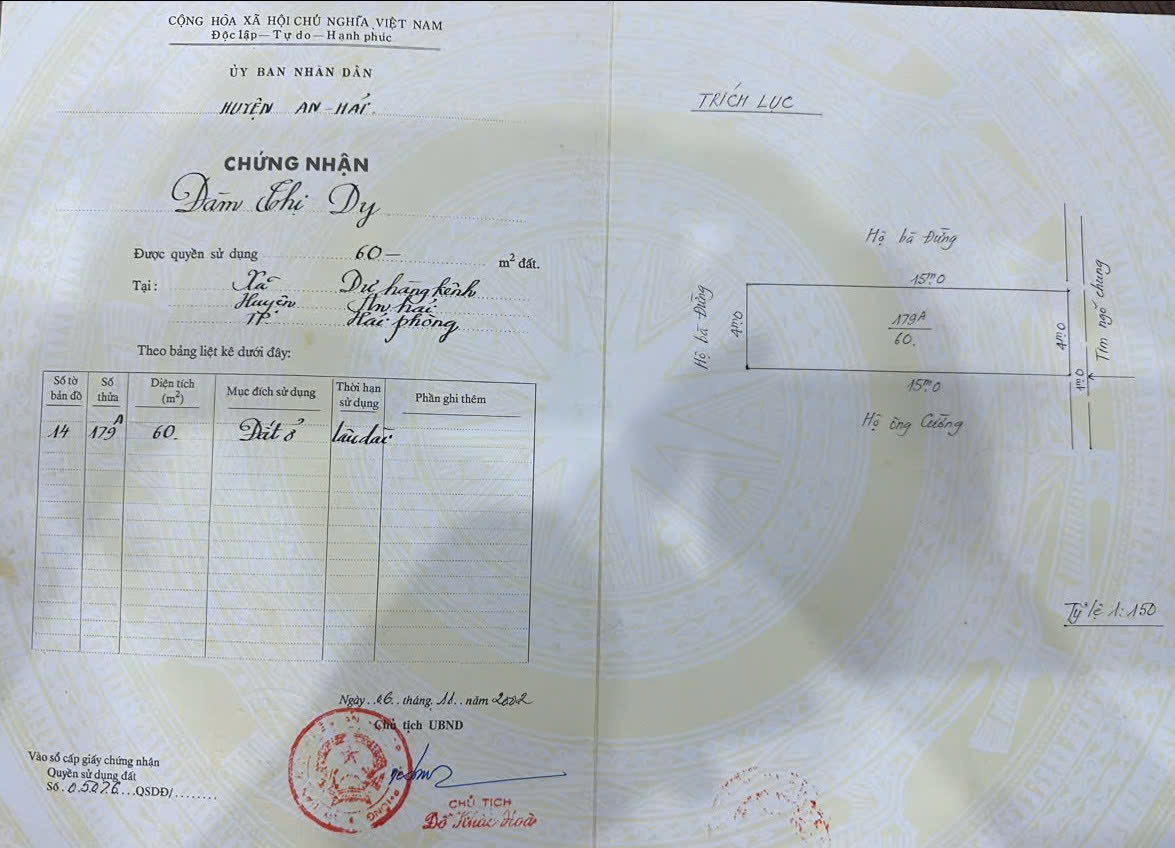 CỘNG HÒA XÃ HỘI CHỦ NGHĨA VIỆT NAM
Độc lập — Tự do — Hạnh phúc
ỦY BAN NHÂN DÂN
HUYỆN AN HẢI.
CHỨNG NHẬN
Đàm Thị Dy
Được quyền sử dụng 60 — m² đất.
Tại: Xã Dư hàng kênh
Huyện An hải
TP. Hải phòng
Theo bảng liệt kê dưới đây:
Số tờ bản đồ Số thửa Diện tích (m²) Mục đích sử dụng Thời hạn sử dụng Phần ghi thêm
14 179A 60. Đất ở lâu dài
Ngày..06..tháng.11..năm 2002
Chủ tịch UBND
Vào sổ cấp giấy chứng nhận
Quyền sử dụng đất
Số.05026...QSDĐ/........
CHỦ TỊCH
Đỗ Khắc Hoà
TRÍCH LỤC
Hộ bà Đửng
15m0
Hộ bà Đửng
4m0
179A
60.
4m0
Tim ngõ chung
1m0
15m0
Hộ ông Cường
Tỷ lệ 1:150